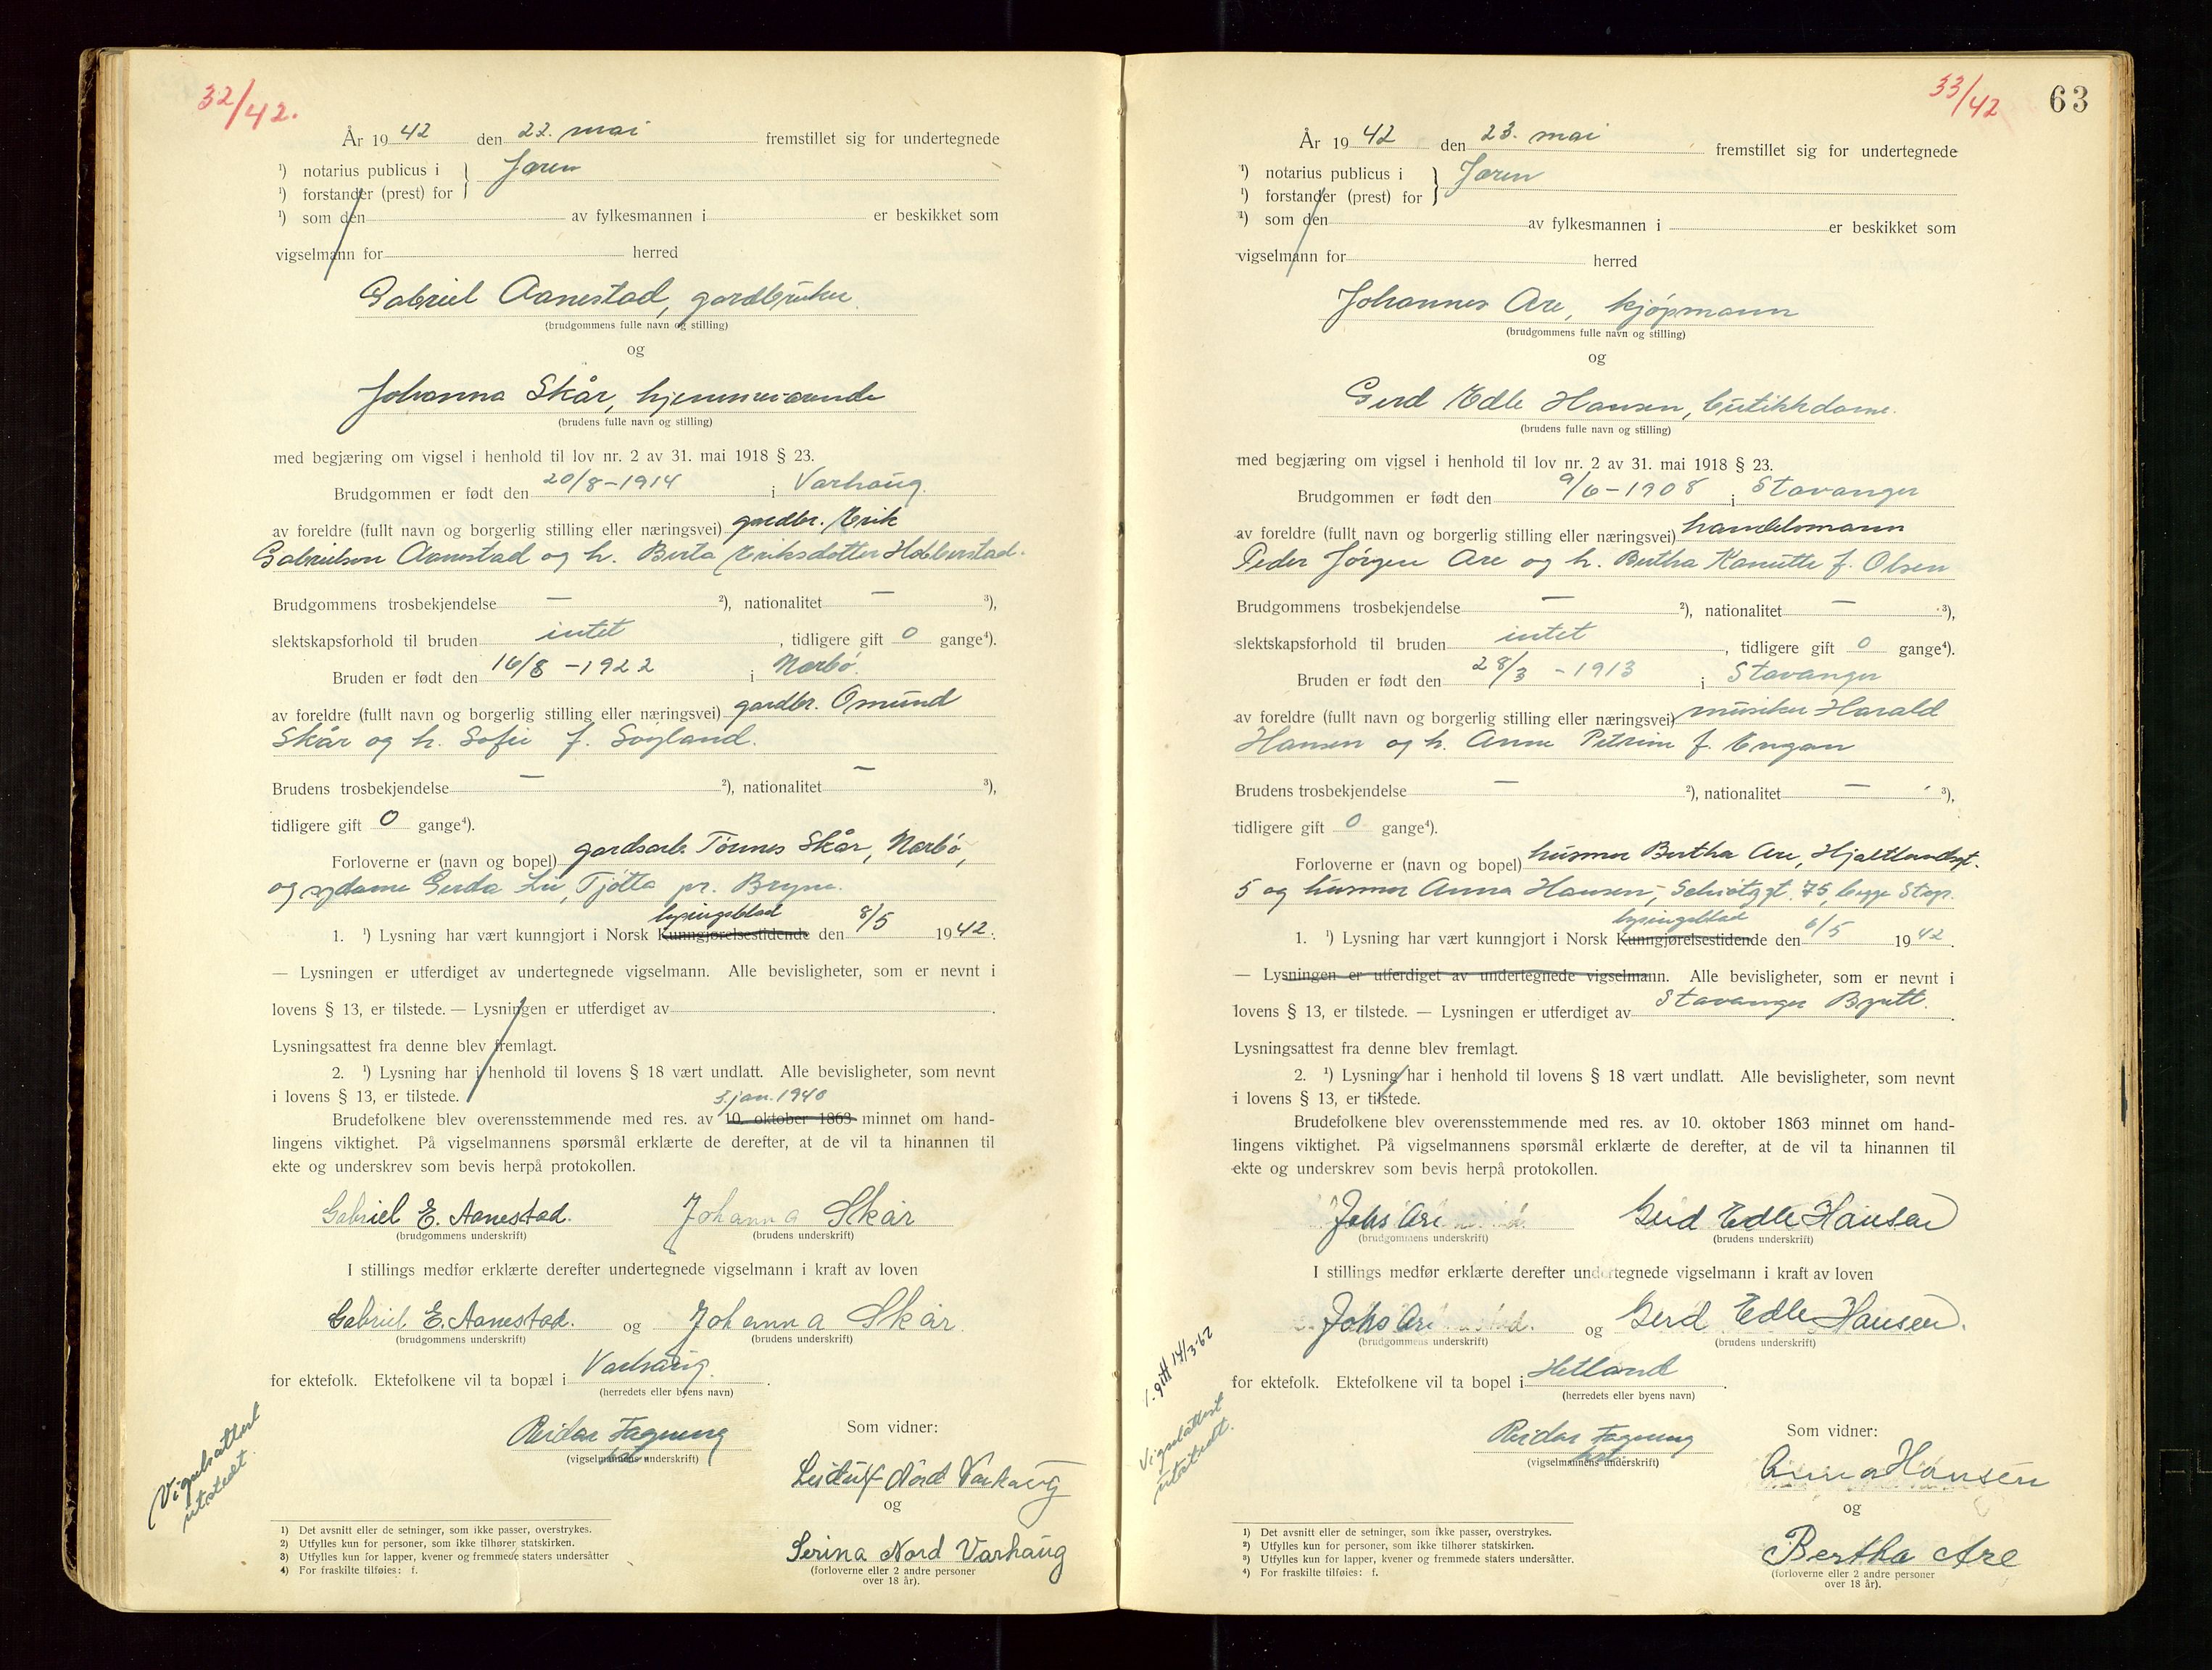 32/42.
År 1942 den 22. mai fremstillet sig for undertegnede
¹) notarius publicus i } Jæren
¹) forstander (prest) for
¹) som den av fylkesmannen i er beskikket som
vigselmann for herred
Gabriel Aanestad, gardbruker.
(brudgommens fulle navn og stilling)
og
Johanna Skår, hjemmeværende
(brudens fulle navn og stilling)
med begjæring om vigsel i henhold til lov nr. 2 av 31. mai 1918 § 23.
Brudgommen er født den 20/8-1914 i Varhaug.
av foreldre (fullt navn og borgerlig stilling eller næringsvei) gardbr. Erik
Gabrielson Aanestad og h. Berta Eriksdotter Hobberstad.
Brudgommens trosbekjendelse — ²), nationalitet — ³),
slektskapsforhold til bruden intet, tidligere gift 0 gange⁴).
Bruden er født den 16/8-1922 i Nærbø.
av foreldre (fullt navn og borgerlig stilling eller næringsvei) gardbr. Omund
Skår og h. Sofie f. Søyland.
Brudens trosbekjendelse — ²), nationalitet — ³),
tidligere gift 0 gange⁴).
Forloverne er (navn og bopel) gardsarb. Tønnes Skår, Nærbø,
og sydame Gerda Lie, Tjøtta pr. Bryne.
lysingsblad
1. ¹) Lysning har vært kunngjort i Norsk Kunngjørelsestidende den 8/5 1942.
— Lysningen er utferdiget av undertegnede vigselmann. Alle bevisligheter, som er nevnt i
lovens § 13, er tilstede. — Lysningen er utferdiget av
Lysningsattest fra denne blev fremlagt.
2. ¹) Lysning har i henhold til lovens § 18 vært undlatt. Alle bevisligheter, som nevnt
i lovens § 13, er tilstede.
5. jan. 1940
Brudefolkene blev overensstemmende med res. av 10. oktober 1863 minnet om hand-
lingens viktighet. På vigselmannens spørsmål erklærte de derefter, at de vil ta hinannen til
ekte og underskrev som bevis herpå protokollen.
Gabriel E. Aanestad. Johanna Skår
(brudgommens underskrift) (brudens underskrift)
I stillings medfør erklærte derefter undertegnede vigselmann i kraft av loven
Gabriel E. Aanestad. og Johanna Skår
(brudgommens underskrift) (brudens underskrift)
for ektefolk. Ektefolkene vil ta bopæl i Varhaug.
(herredets eller byens navn)
Vigselsattest
utstedt.
Reidar Fagnung
(vigselmannens underskrift)
Som vidner:
Leidulf Nord Varhaug
og
Serina Nord Varhaug
(forloverne eller 2 andre personer
over 18 år).
1) Det avsnitt eller de setninger, som ikke passer, overstrykes.
2) Utfylles kun for personer, som ikke tilhører statskirken.
3) Utfylles kun for lapper, kvener og fremmede staters undersåtter
4) For fraskilte tilføies: f.
33/42
63
År 1942 den 23. mai fremstillet sig for undertegnede
¹) notarius publicus i } Jæren
¹) forstander (prest) for
¹) som den av fylkesmannen i er beskikket som
vigselmann for herred
Johannes Are, kjøpmann
(brudgommens fulle navn og stilling)
og
Gerd Edle Hansen, butikkdame.
(brudens fulle navn og stilling)
med begjæring om vigsel i henhold til lov nr. 2 av 31. mai 1918 § 23.
Brudgommen er født den 9/6-1908 i Stavanger
av foreldre (fullt navn og borgerlig stilling eller næringsvei) handelsmann
Peder Jørgen Are og h. Bertha Kanutte f. Olsen
Brudgommens trosbekjendelse — ²), nationalitet — ³),
slektskapsforhold til bruden intet, tidligere gift 0 gange⁴).
Bruden er født den 28/3-1913 i Stavanger
av foreldre (fullt navn og borgerlig stilling eller næringsvei) musiker Harald
Hansen og h. Anne Petrine f. Engan
Brudens trosbekjendelse — ²), nationalitet — ³),
tidligere gift 0 gange⁴).
Forloverne er (navn og bopel) husmor Bertha Are, Hjaltlandsgt.
5 og husmor Anna Hansen, Schiøtzgt. 75, begge Stvgr.
lysingsblad
1. ¹) Lysning har vært kunngjort i Norsk Kunngjørelsestidende den 6/5 1942.
— Lysningen er utferdiget av undertegnede vigselmann. Alle bevisligheter, som er nevnt i
lovens § 13, er tilstede. — Lysningen er utferdiget av Stavanger Byrett.
Lysningsattest fra denne blev fremlagt.
2. ¹) Lysning har i henhold til lovens § 18 vært undlatt. Alle bevisligheter, som nevnt
i lovens § 13, er tilstede.
Brudefolkene blev overensstemmende med res. av 10. oktober 1863 minnet om hand-
lingens viktighet. På vigselmannens spørsmål erklærte de derefter, at de vil ta hinannen til
ekte og underskrev som bevis herpå protokollen.
Johs Are Gerd Edle Hansen
(brudgommens underskrift) (brudens underskrift)
I stillings medfør erklærte derefter undertegnede vigselmann i kraft av loven
Johs Are og Gerd Edle Hansen.
(brudgommens underskrift) (brudens underskrift)
for ektefolk. Ektefolkene vil ta bopel i Hetland
(herredets eller byens navn)
gitt 14/3-62
Vigselattest
utstedt.
Reidar Fagnung
(vigselmannens underskrift)
Som vidner:
Anna Hansen
og
Bertha Are
(forloverne eller 2 andre personer
over 18 år).
1) Det avsnitt eller de setninger, som ikke passer, overstrykes.
2) Utfylles kun for personer, som ikke tilhører statskirken.
3) Utfylles kun for lapper, kvener og fremmede staters undersåtter.
4) For fraskilte tilføies: f.